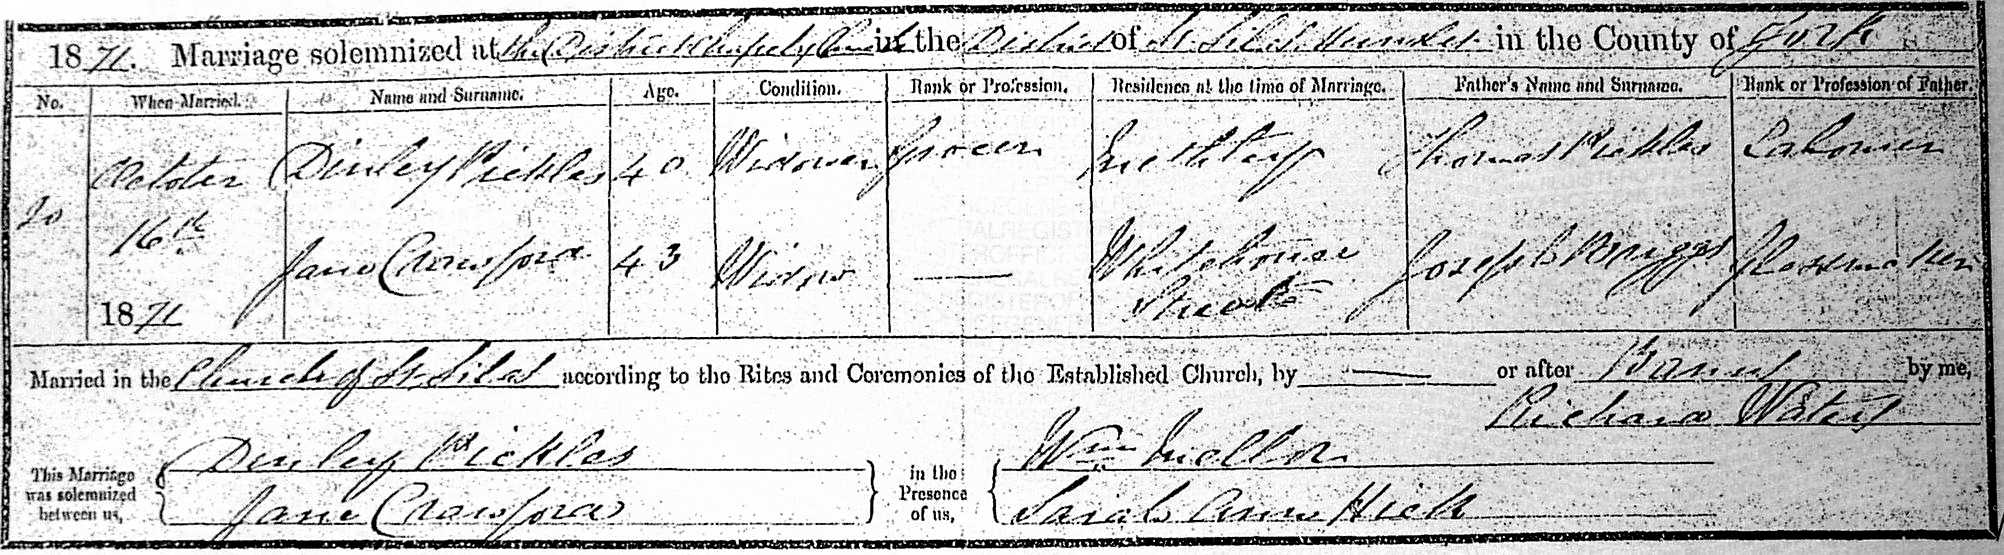 1871. Marriage solemnized at the District Chapelry Church in the District of St Silas Hunslet in the County of York
No. When Married. Name and Surname. Age. Condition. Rank or Profession. Residence at the time of Marriage. Father's Name and Surname. Rank or Profession of Father.
October Dinley Pickles 40 Widower Grocer Methley Thomas Pickles Labourer
20
16th Jane Crawford 43 Widow — Whitehouse Joseph Briggs Glassmaker
Street
1871
Married in the Church of St. Silas according to the Rites and Ceremonies of the Established Church, by — or after Banns by me,
Richard Waters
This Marriage was solemnized between us, Dinley Pickles in the Presence of us, Wm Mellor
Jane Crawford Sarah Ann Hick